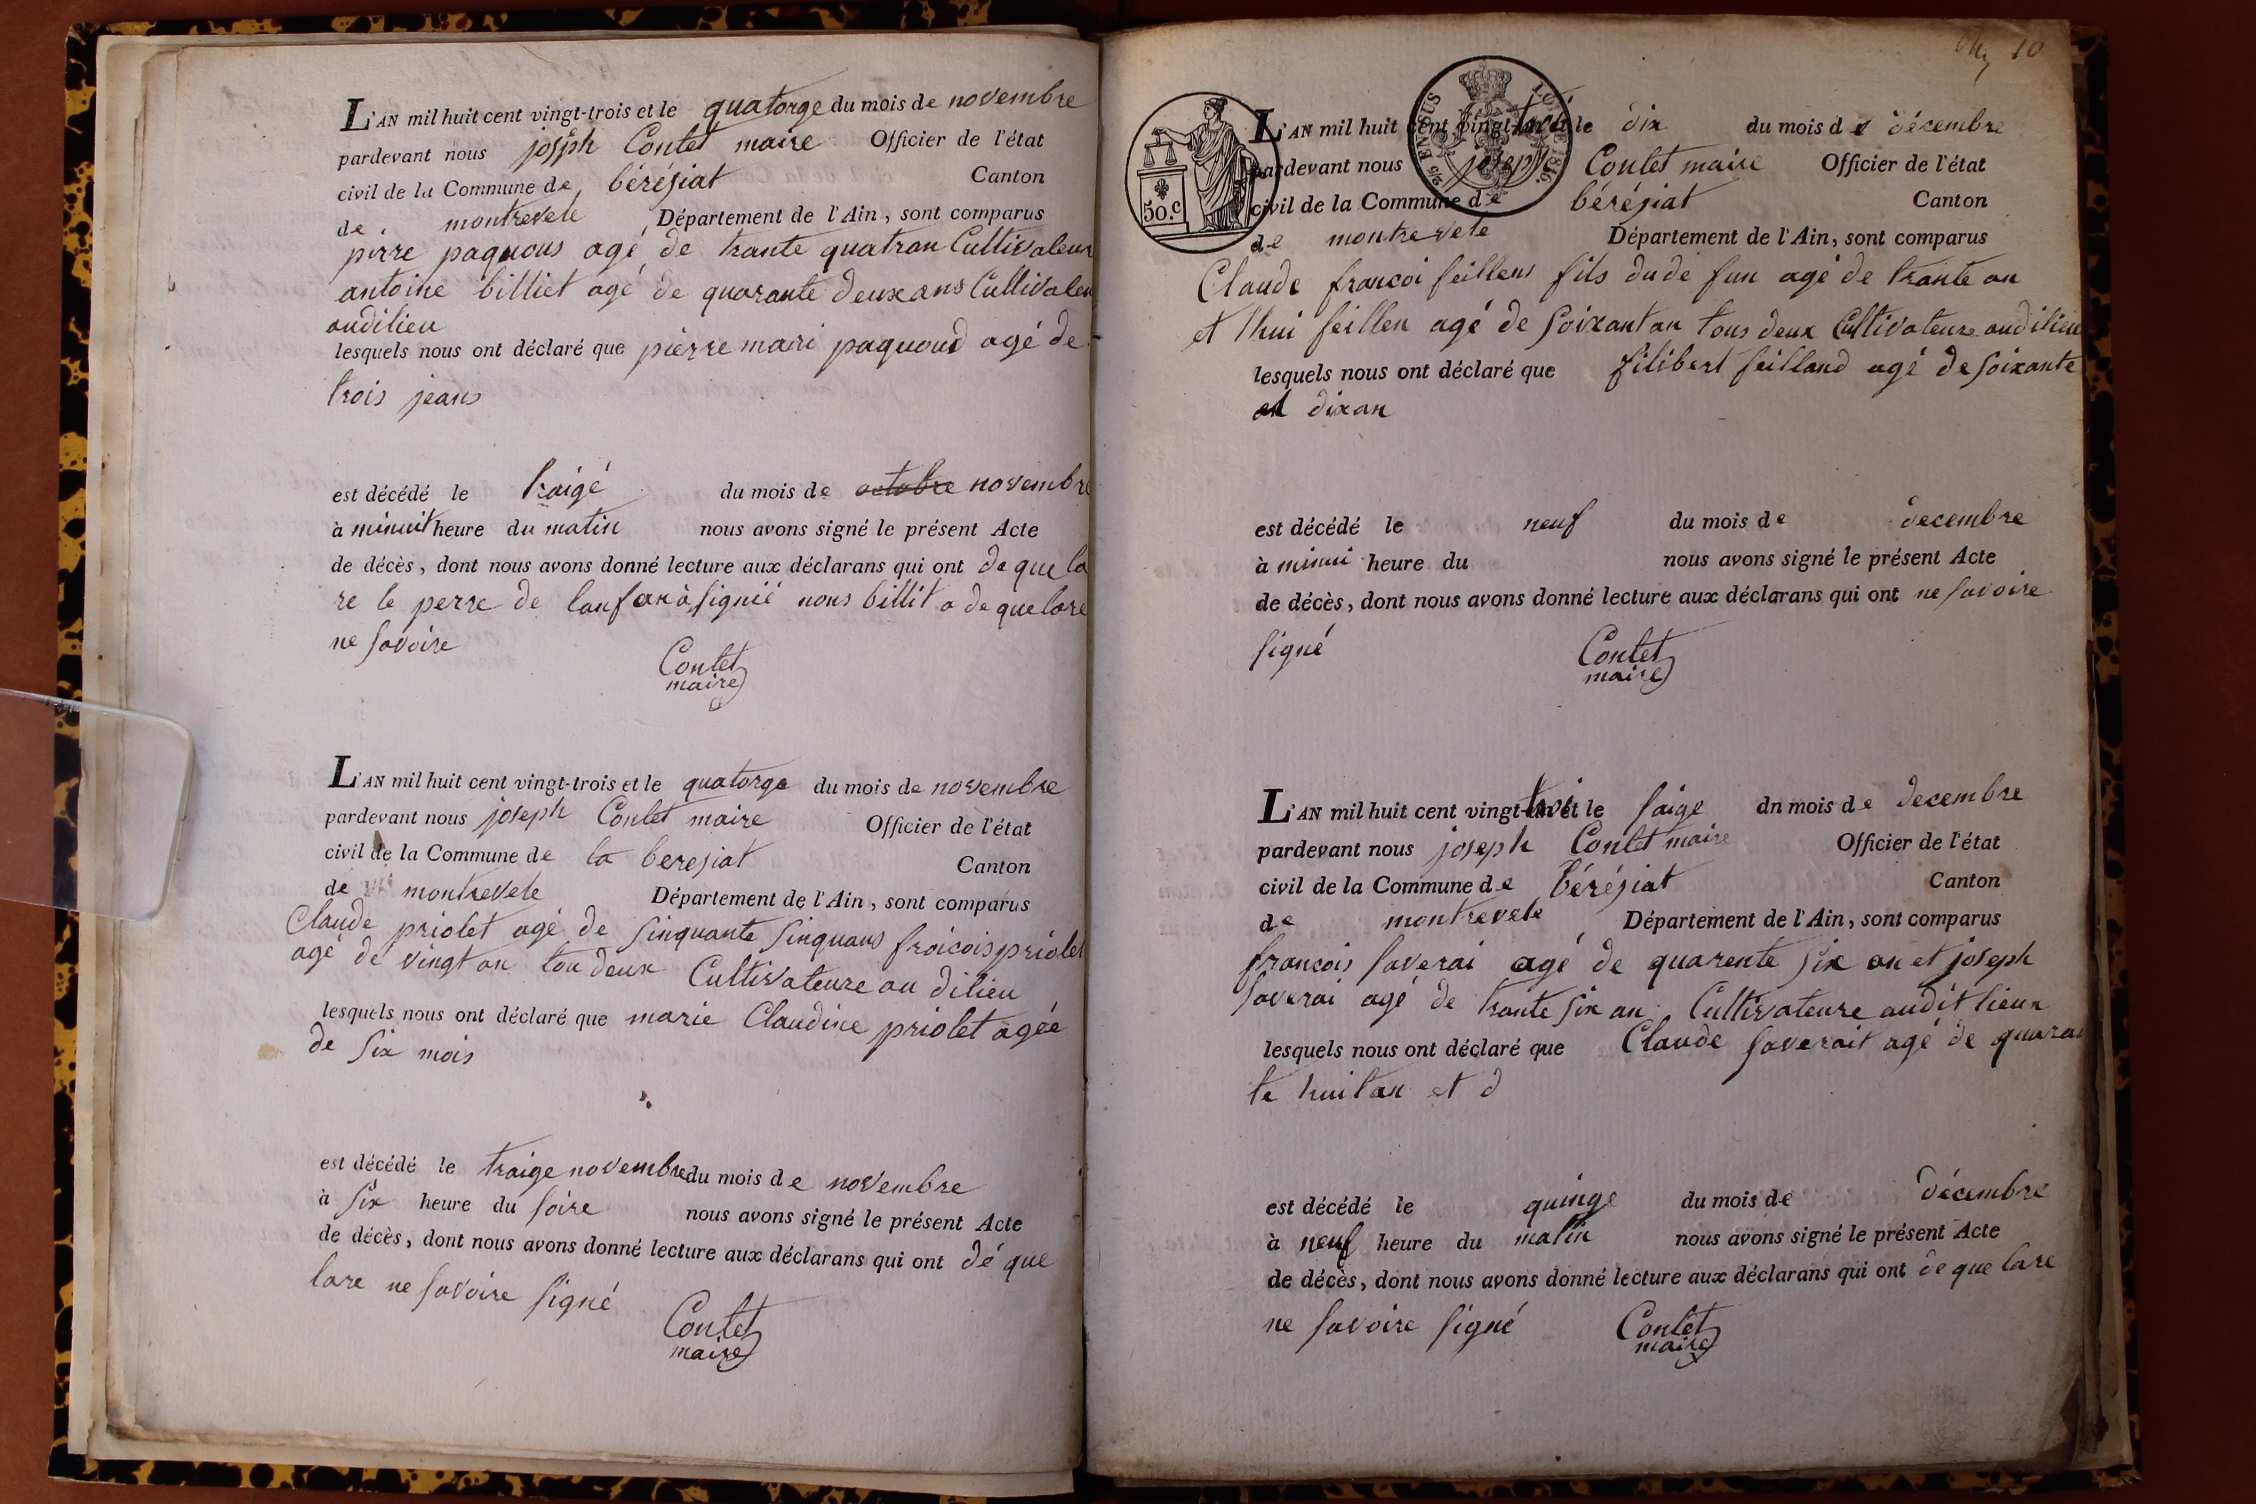 L'AN mil huit cent vingt-trois et le quatorge du mois de novembre
pardevant nous joseph Contet maire Officier de l'état
civil de la Commune de bérésiat Canton
de montrevele Département de l'Ain, sont comparus
pirre paquous agé de trante quatran Cultivateur
antoine billiet agé de quarante deux ans Cultivateu
audilieu
lesquels nous ont déclaré que pierre mari paquoud agé de
trois jeans
est décédé le traigé du mois de octobre novembre
à minuit heure du matin nous avons signé le présent Acte
de décès, dont nous avons donné lecture aux déclarans qui ont de que la
re le perre de lanfan à signié nous billit a de que lare
ne savoire
Contet
maire
L'AN mil huit cent vingt-trois et le quatorge du mois de novembre
pardevant nous joseph Contet maire Officier de l'état
civil de la Commune de la beresiat Canton
de montrevele Département de l'Ain, sont comparus
Claude priolet agé de sinquante sinquans froicois priolet
agé de vingt an tou deux Cultivateure au dilieu
lesquels nous ont déclaré que marie Claudine priolet agée
de six mois
est décédé le traige novembre du mois de novembre
à six heure du soire nous avons signé le présent Acte
de décès, dont nous avons donné lecture aux déclarans qui ont dé que
lare ne savoire signé
Contet
maire
10
50.c
L'AN mil huit cent vingt-trois et le dix du mois de décembre
pardevant nous joseph Contet maire Officier de l'état
civil de la Commune de bérésiat Canton
de montrevele Département de l'Ain, sont comparus
Claude francoi feillens fils du de fun agé de trante an
et lhui feillen agé de soixant an tous deux Cultivateure audilieu
lesquels nous ont déclaré que filibert feilland agé de soixante
et dixan
est décédé le neuf du mois de decembre
à minui heure du nous avons signé le présent Acte
de décès, dont nous avons donné lecture aux déclarans qui ont ne savoire
signé
Contet
maire
L'AN mil huit cent vingt-troi et le saige dn mois de decembre
pardevant nous joseph Contet maire Officier de l'état
civil de la Commune de bérésiat Canton
de montrevele Département de l'Ain, sont comparus
francois saverai agé de quarente six an et joseph
saverai agé de trante six an Cultivateure audit lieux
lesquels nous ont déclaré que Claude saverait agé de quaran
te huitan et d
est décédé le quinge du mois de décembre
à neuf heure du matin nous avons signé le présent Acte
de décès, dont nous avons donné lecture aux déclarans qui ont de que lare
ne savoire signé
Contet
maire